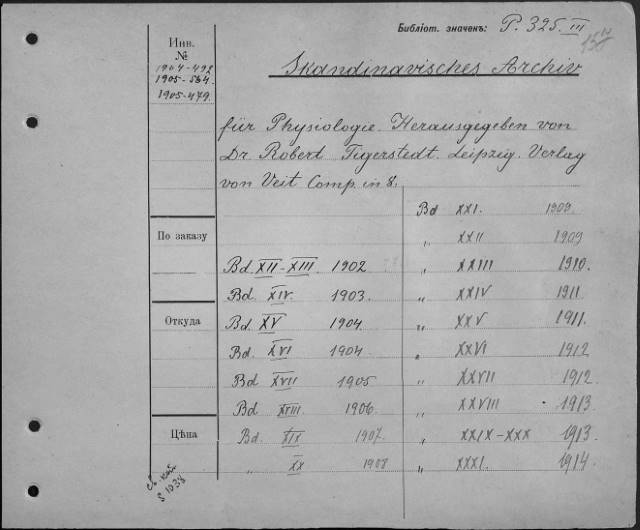 Библіот. значенъ: P. 325. III
Инв.
№
1904-492
1905-534
1905-479
Skandinavisches Archiv
für Physiologie. Herausgegeben von
Dr. Robert Tigerstedt. Leipzig. Verlag
von Veit Comp. in 8.
По заказу
Откуда
Цѣна
Bd. XII-XIII. 1902
Bd. XIV. 1903.
Bd. XV 1904.
Bd. XVI 1904
Bd. XVII 1905
Bd. XVIII. 1906.
Bd. XIX 1907.
" XX 1908
Bd XXI. 1909.
" XXII 1909
" XXIII 1910.
" XXIV 1911
" XXV 1911.
" XXVI 1912
" XXVII 1912.
" XXVIII 1913
" XXIX-XXX 1913.
" XXXI. 1914.